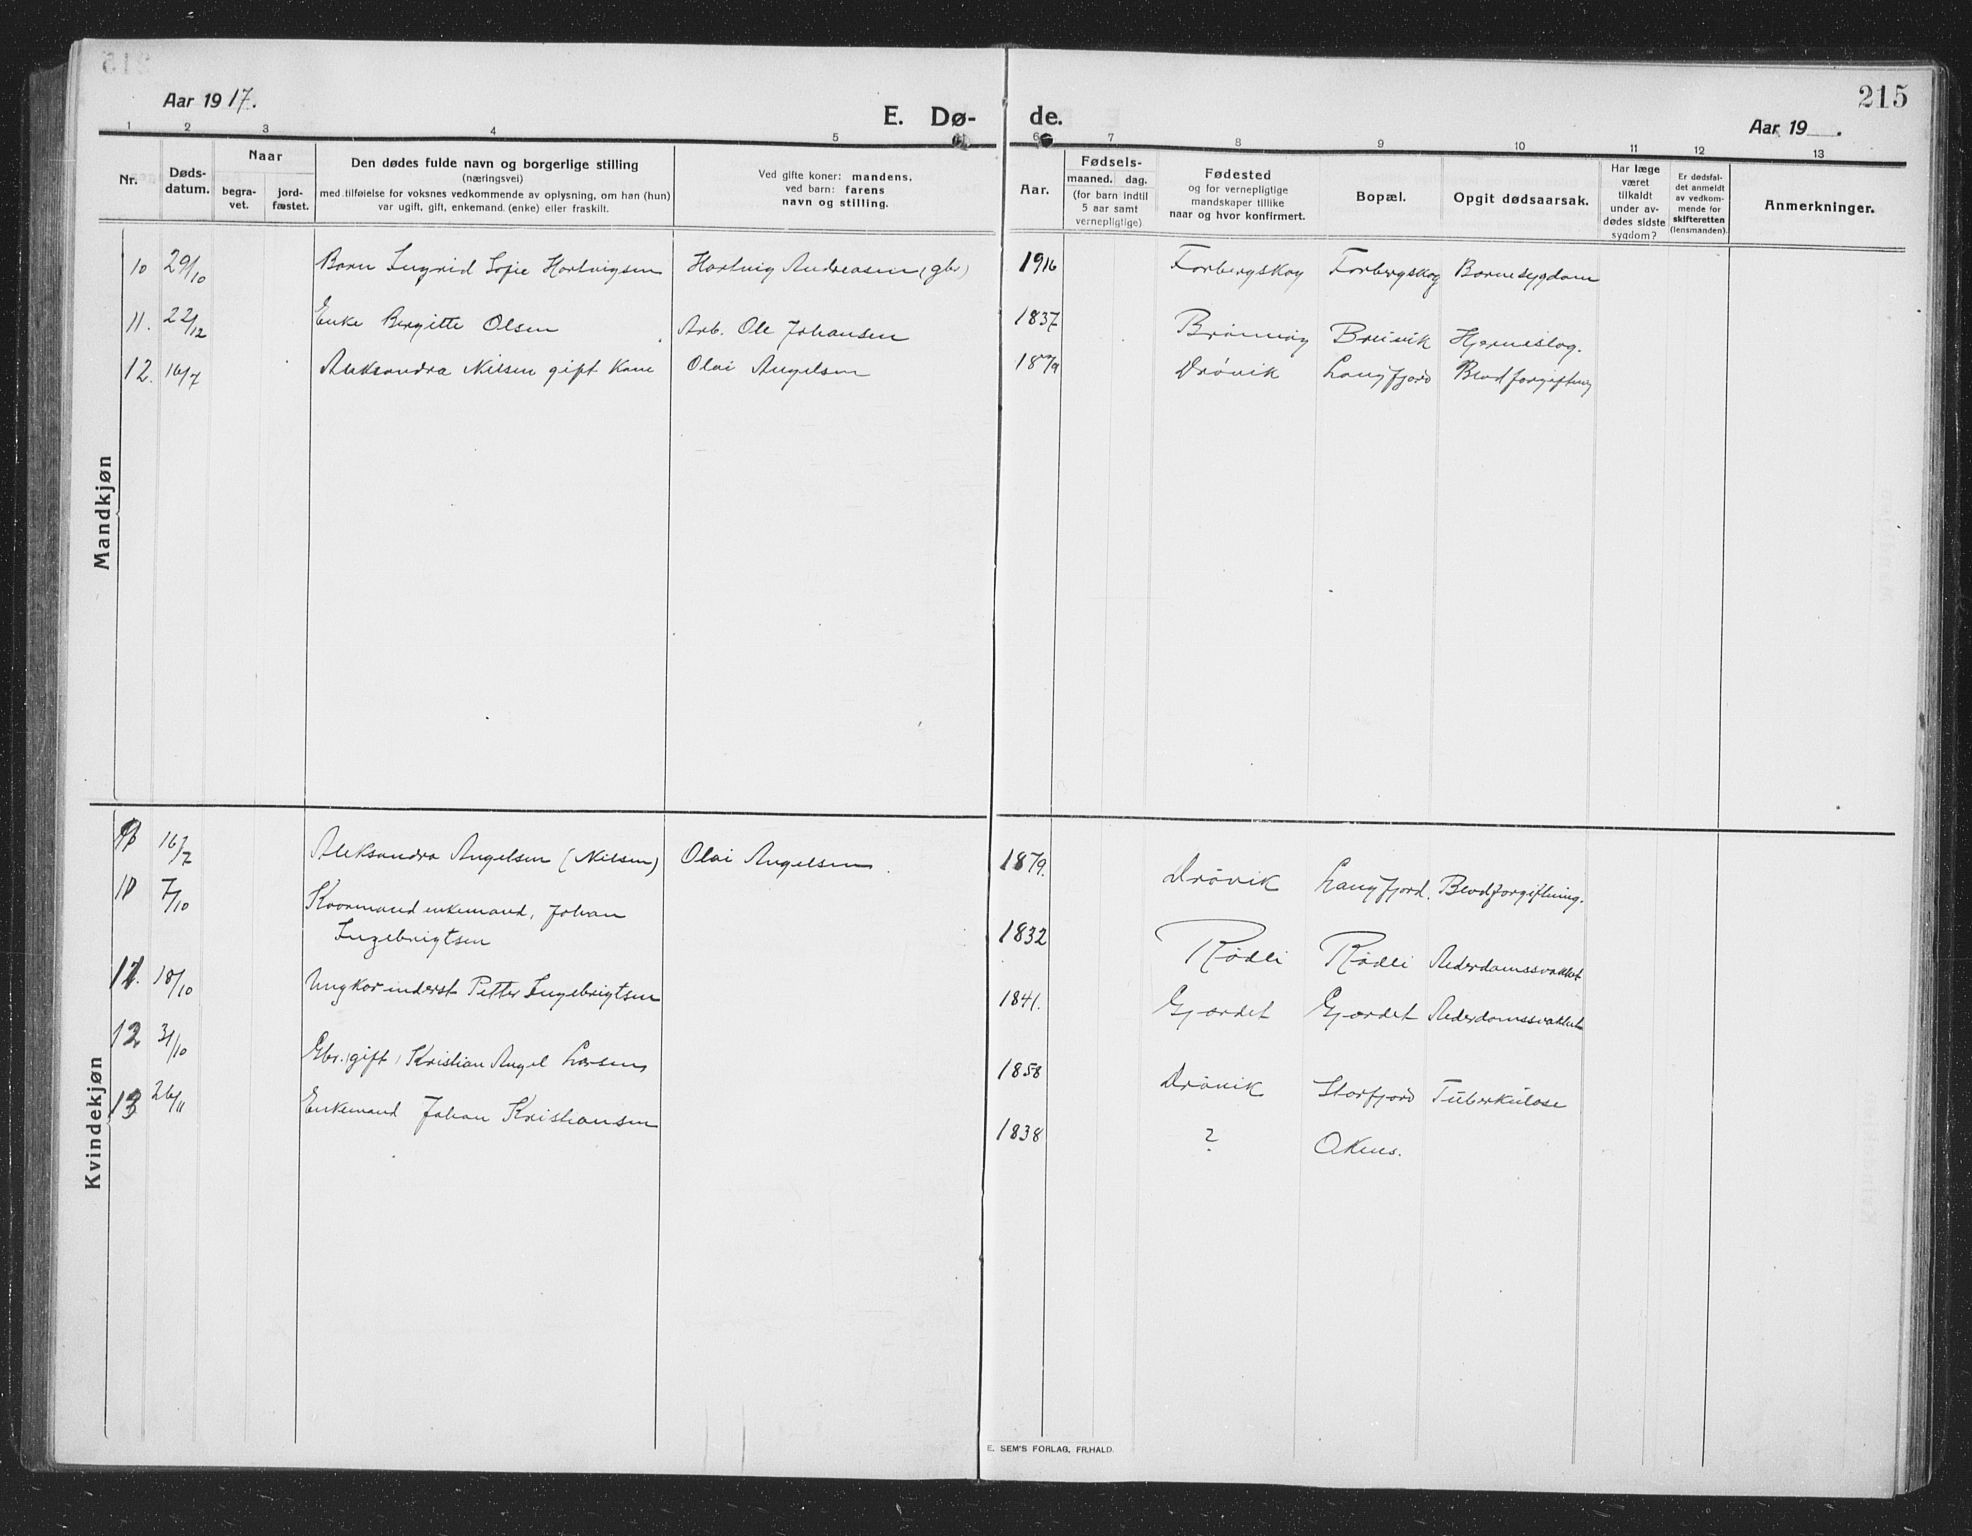 215
Aar 1917.
E. Dø- de.
Aar 19 .
1 2 3 4 5 6 7 8 9 10 11 12 13
Nr.
Døds-
datum.
Naar
begra-
vet.
jord-
fæstet.
Den dødes fulde navn og borgerlige stilling
(næringsvei)
med tilføielse for voksnes vedkommende av oplysning, om han (hun)
var ugift, gift, enkemand (enke) eller fraskilt.
Ved gifte koner: mandens,
ved barn: farens
navn og stilling.
Aar.
Fødsels-
maaned. dag.
(for barn indtil
5 aar samt
vernepligtige)
Fødested
og for vernepligtige
mandskaper tillike
naar og hvor konfirmert.
Bopæl.
Opgit dødsaarsak.
Har læge
været
tilkaldt
under av-
dødes sidste
sygdom?
Er dødsfal-
det anmeldt
av vedkom-
mende for
skifteretten
(lensmanden).
Anmerkninger.
Mandkjøn
10 29/10 Barn Ingrid Sofie Hartvigsen Hartvig Andreasen (gbr) 1916 Forbergskog Forbergskog Barnesygdom
11. 22/12 Enke Bergitte Olsen Arb. Ole Johansen 1837 Brønnøy Bruvik Hjerneslag.
12. 16/7 Aleksandra Nilsen gift Kone Olai Angelsen 1879 Drövik Langfjord Blodforgiftning
Kvindekjøn
16/7 Aleksandra Angelsen (Nilsen) Olai Angelsen. 1879. Drövik Langfjord. Blodforgiftning.
7/10 Kaarmand enkemand, Johan
Ingebrigtsen 1832 Rødli Rødli Alderdomssvakhet
18/10 Ungkar inderst Petter Ingebrigtsen 1841. Gjærdet Gjærdet Alderdomssvakhet
12 31/10 Gbr. (gift) Kristian Angel Larsen 1858 Drövik Storfjord Tuberkulose
13 26/11 Enkemand Johan Kristiansen 1838 ? Okens.
E. SEM'S FORLAG, FR.HALD.